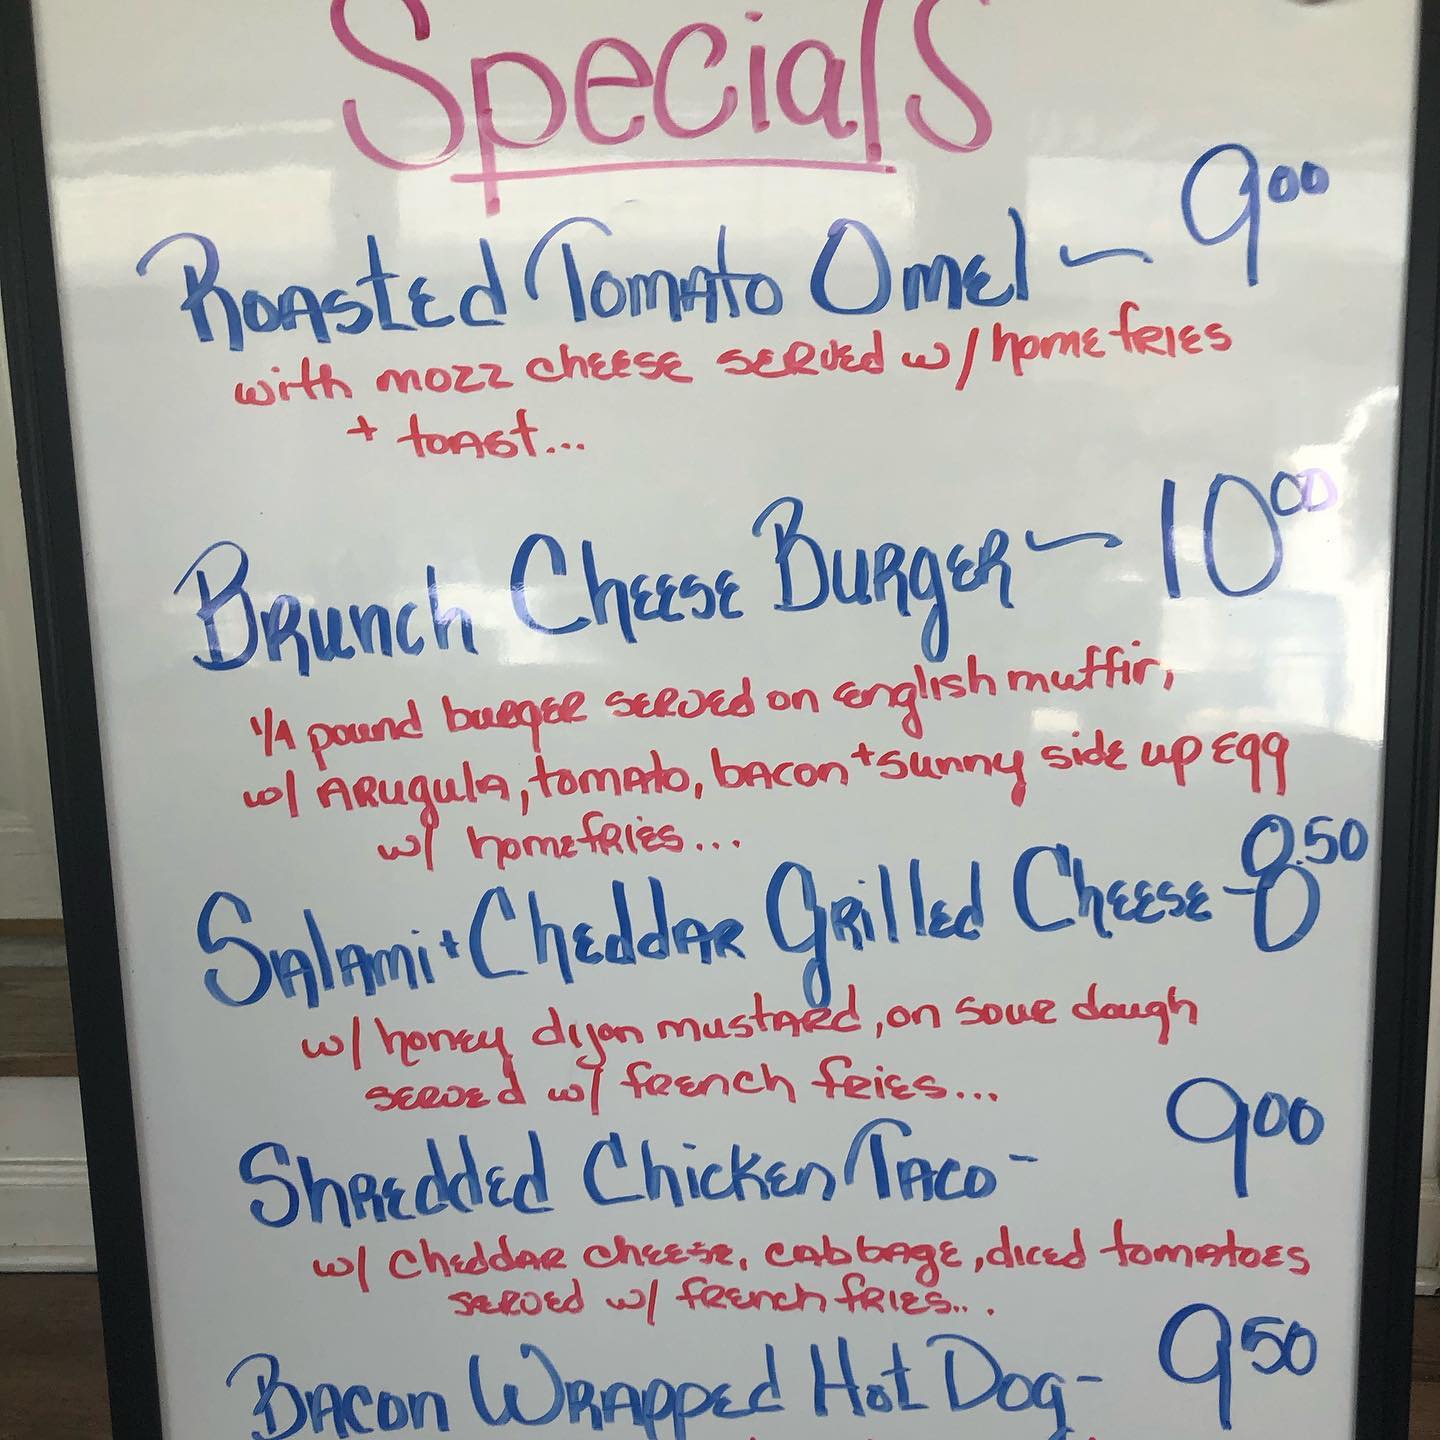 Specials
Roasted Tomato Omel - 9.00
with mozz cheese served w/ home fries
+ toast...
Brunch Cheese Burger - 10.00
1/4 pound burger served on english muffin,
w/ Arugula, tomato, bacon + sunny side up egg
w/ homefries...
Salami + Cheddar Grilled Cheese - 8.50
w/ honey dijon mustard, on sour dough
served w/ french fries...
Shredded Chicken Taco - 9.00
w/ cheddar cheese, cabbage, diced tomatoes
served w/ french fries...
Bacon Wrapped Hot Dog - 9.50